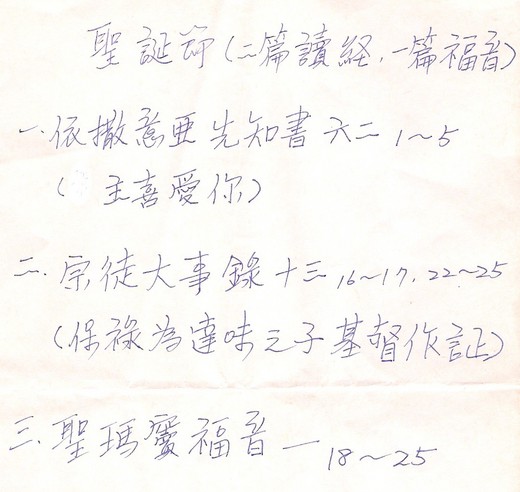 聖誕節(二篇讀経,一篇福音)
一.依撒意亞先知書 六二 1~5
( 主喜愛你)
二.宗徒大事錄 十三 16~17, 22~25
(保祿為達味之子基督作証)
三.聖瑪竇福音 一 18~25